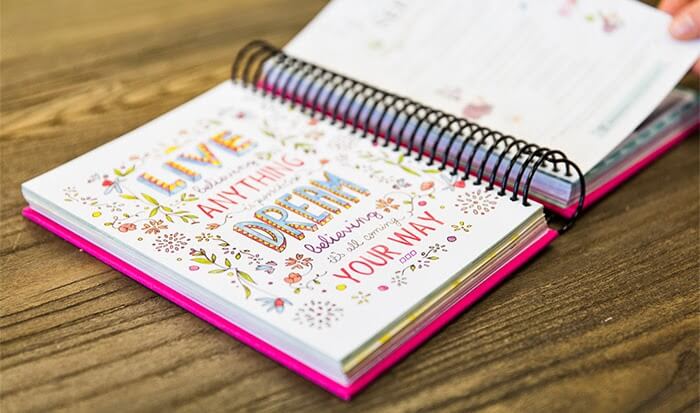 LIVE
believing
ANYTHING
is possible
DREAM
believing
it's all coming
YOUR WAY